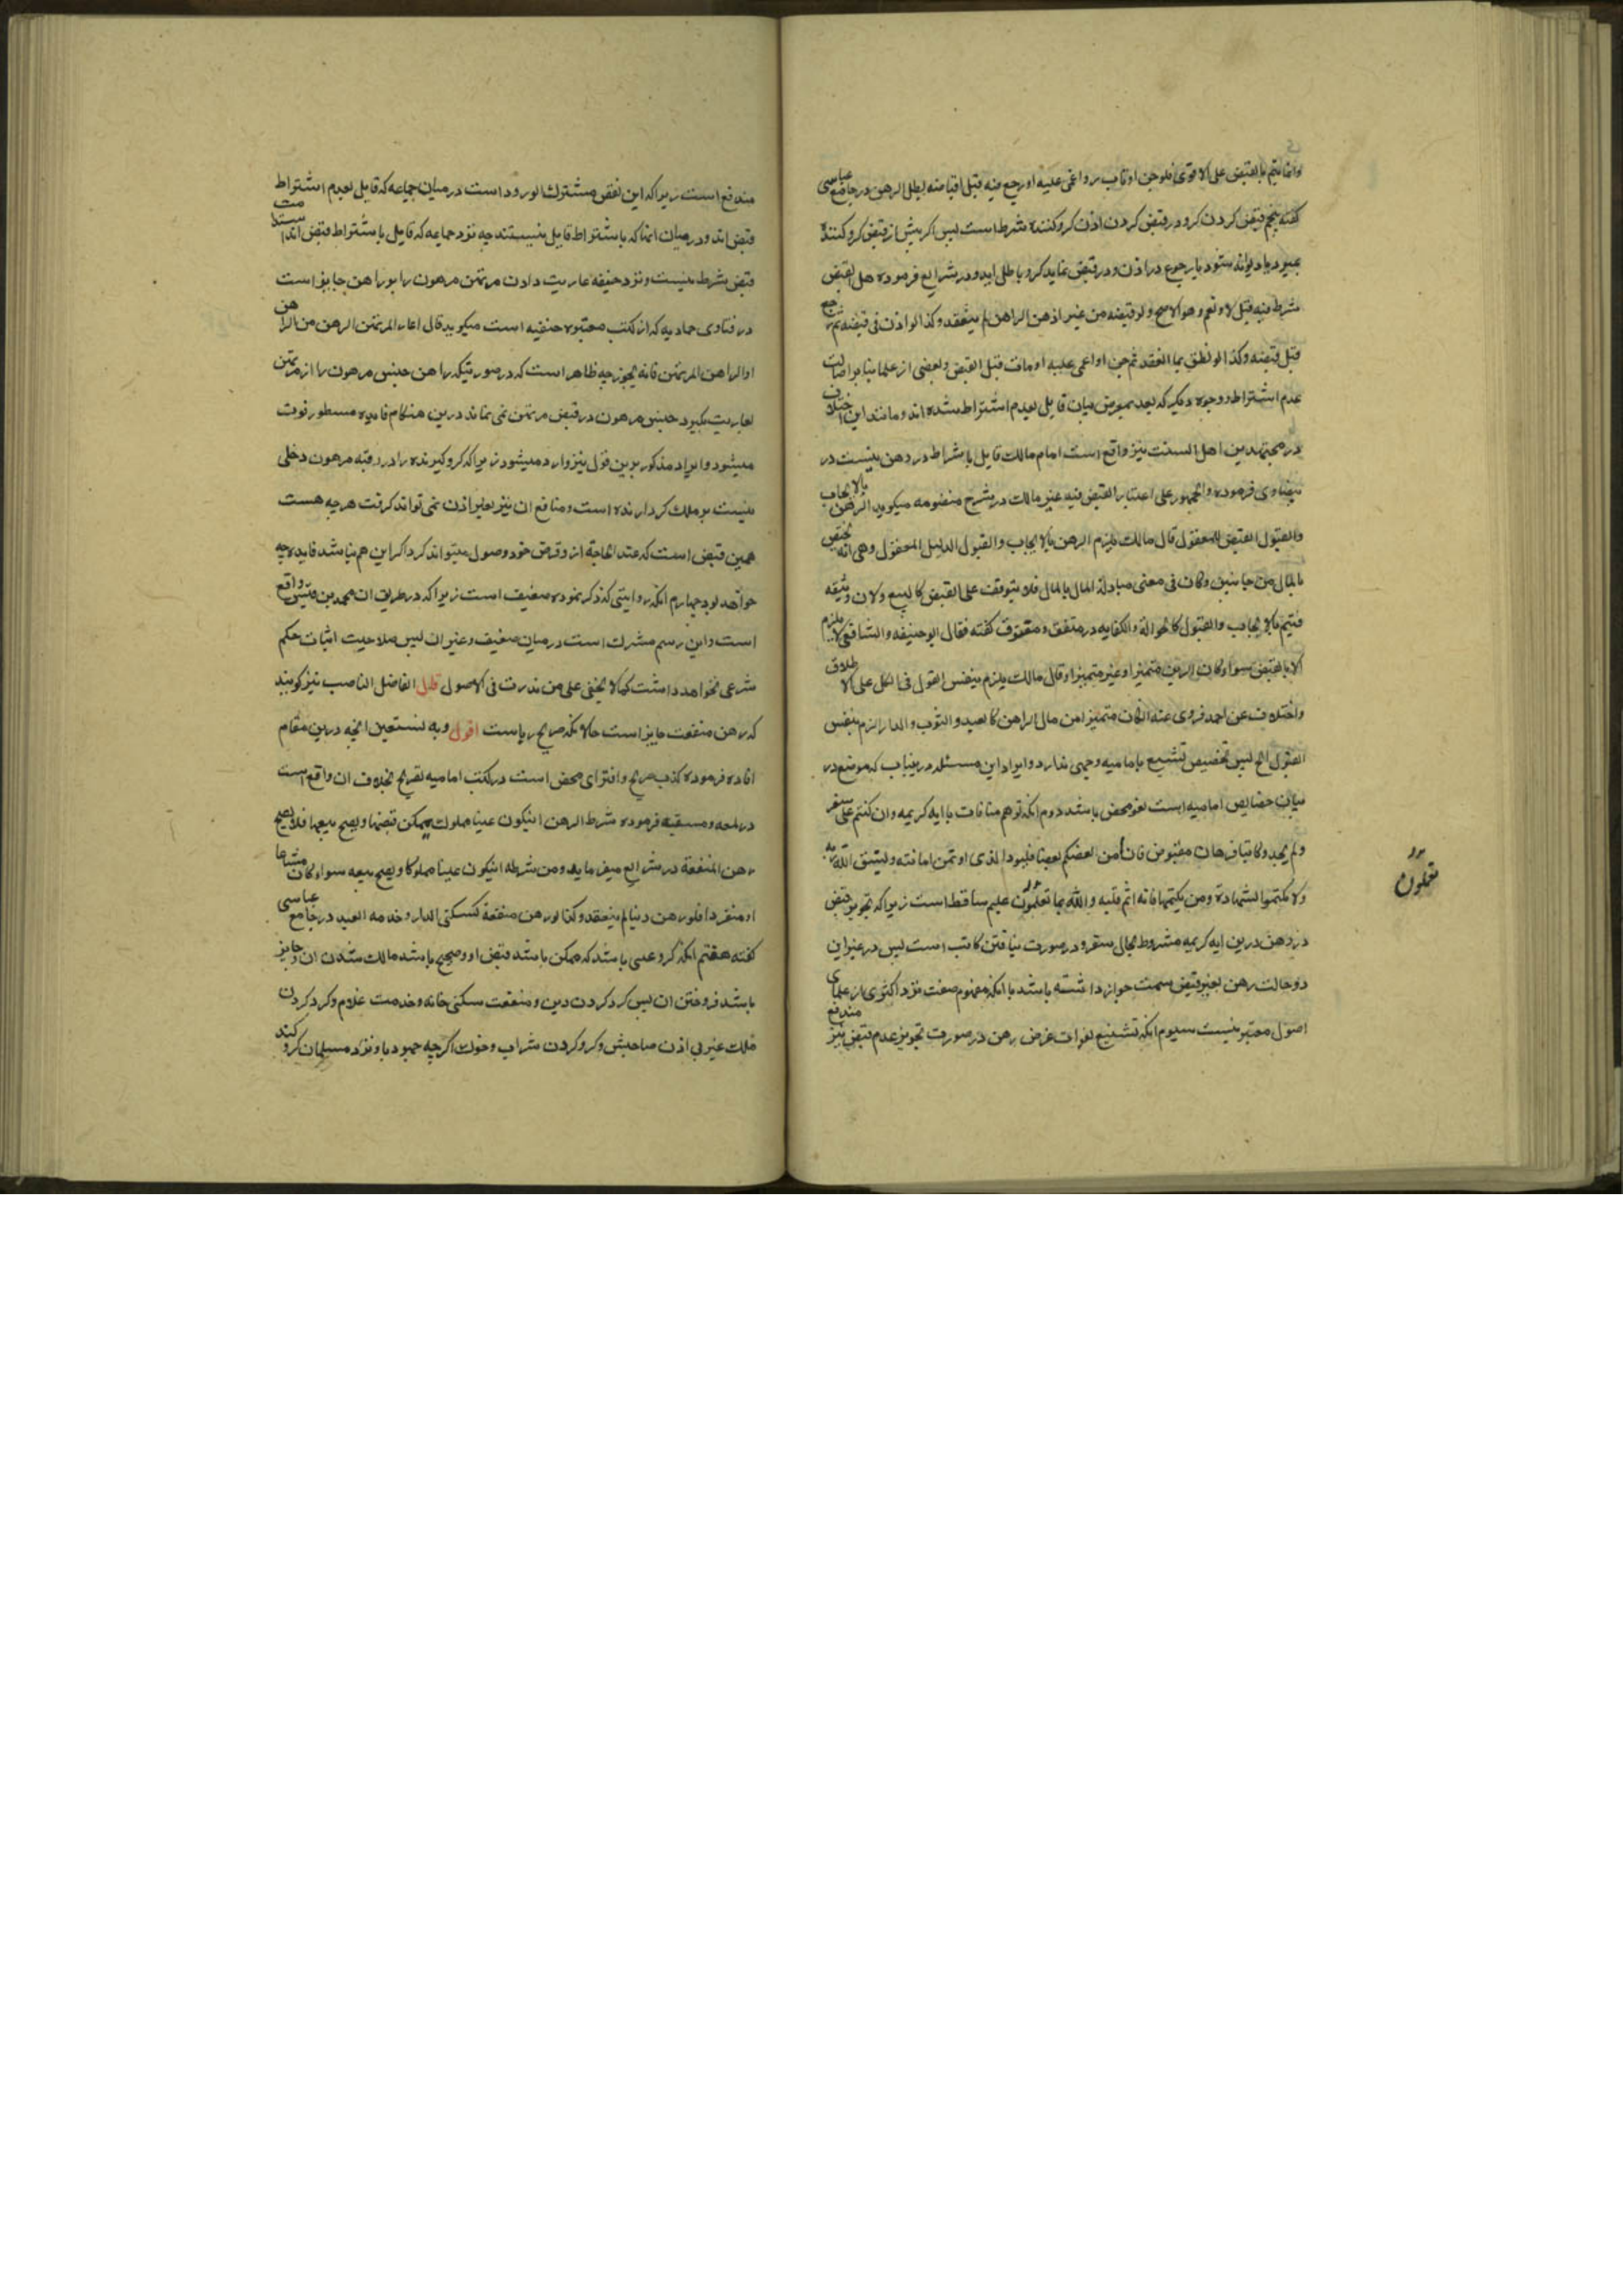 وانما یتم بالقبض علی الاقوی فلو جن او مات او اغمی علیه او رجع فیه قبل اقباضه بطل الرهن در جامع عباسی
کفته پنجم قبض کردن کرو و در قبض کردن اذن کرو کننده شرط است پس اکر پیش از قبض کرو کننده
بمیرد یا دیوانه شود یا رجوع در اذن و در قبض نماید کرو باطل است و در شرایع فرموده هل القبض
شرط فیه قیل لا و نعم و هو الاصح و لو قبضه من غیر اذن الراهن لم ینعقد و کذا لو اذن فی قبضه ثم رجع
قبل قبضه و کذا لو نطق بما العقد ثم جن او اغمی علیه او مات قبل القبض و بعضی از علما بنا بر اصالت
عدم اشتراط و وجوه دیکر که بعد بمعرض بیان قایل بعدم اشتراط شده اند و مانند این اختلاف
در مجتهدین اهل السنت نیز واقع است امام مالک قایل باشراط در رهن نیست در
بیضاوی فرموده والجمهور علی اعتبار القبض فیه غیر مالک در شرح منضومه میکوید الرهن بالایجاب
والقبول القبض للمعقول قال مالک یلزم الرهن بالایجاب والقبول الدلیل المعقول وهی انه یختص
بالمال من جانبین وکان فی معنی مبادلة المال بالمال فلا یتوقف علی القبض کالبیع ولان وثیقه
فیتم بالایجاب والقبول کالحوالة والکفایه در متفق و مفترق کفته فقال ابو حنیفه والشافعی لا یلزم
الا بالقبض سواء کان الرهن متمیزا او غیر متمیز او قال مالک یلزم بنفس القول فی الکل علی الاطلاق
واختلاف عن احمد فروی عنه ان کان متمیزا من مال الراهن کالعبد و الثوب و الدار الزم بنفس
القول الخ پس تخصیص تشنیع بامامیه وجهی ندارد و ایراد این مسئله درینباب که موضع در
بیان خصایص امامیه است لغو محض باشد دوم انکه توهم منافات با ایه کریمه وان کنتم علی سفر
ولم تجدوا کاتبا فرهان مقبوض فان امن بعضکم بعضا فلیود الذی اوتمن امانته ولیتق الله ربه
ولا تکتموا الشهادة ومن یکتمها فانه اثم قلبه والله بما تعلمون علیم ساقط است زیرا که تجویز قبض
در رهن درین ایه کریمه مشروط بحال سفر و در صورت نیافتن کاتب است پس در غیر این
دو حالت رهن بغیر قبض سمت جواز داشته باشد با انکه مفهوم صفت نزد اکثری از علمای
اصول معتبر نیست سیوم انکه تشنیع بفوات غرض رهن در صورت تجویز عدم قبض نیز مندفع
تعملون
مندفع است زیرا که این نقض مشترک الورود است در میان جماعه که قایل بعدم اشتراط
قبض اند و در میان انها که باشتراط قایل نیستند چه نزد جماعه که قایل باشتراط قبض اند استدامت
قبض شرط نیست و نزد حنیفه عاریت دادن مرتهن مرهون را براهن جایز است
در فتاوی حمادیه که از کتب معتبره حنفیه است میکوید قال اعار المرتهن الرهن من الراهن
او الراهن المرتهن فانه یجوز چه ظاهر است که در صورتیکه راهن جنس مرهون را از مرتهن
بعاریت بکیرد جنس مرهون در قبض مرتهن نمی ماند درین هنکام فایده مسطور فوت
میشود و ایراد مذکور برین قول نیز وارد میشود زیرا که کرو کیرنده را در رقبه مرهون دخلی
نیست بر ملک کردارنده است و منافع ان نیز بغیر اذن نمی تواند کرفت هرچه هست
همین قبض است که عند الحاجة از وی حق خود وصول میتواند کرد اکر این هم نباشد فایده چه
خواهد بود چهارم انکه روایتی که ذکر نموده ضعیف است زیرا که در طریق ان محمد بن قیس واقع
است و این رسم مشترک است در میان ضعیف و غیر ان پس صلاحیت اثبات حکم
شرعی نخواهد داشت کما لا یخفی علی من تدرب فی الاصول قال الفاضل الناصب نیز کویند
که رهن منفعت جایز است حالانکه صریح ریاست اقول وبه نستعین انچه درین مقام
افاده فرموده کذب صریح و افترای محض است در کتب امامیه تصریح بخلاف ان واقع است
در لمعه دمسقیه فرموده شرط الرهن ان یکون عینا مملوک یمکن قبضها و یصح بیعها فلا یصح
رهن المنفعة در شرایع میفرماید ومن شرطه ان یکون عینا مملوکا و یصح بیعه سواء کان مشاعا
او منفردا فلو رهن دینا لم ینعقد وکذا لو رهن منفعة کسکنی الدار و خدمه العبد در جامع عباسی
کفته هفتم انکه کرو عینی باشد که ممکن باشد قبض او و صحیح باشد مالک شدن ان و جایز
باشد فروختن ان پس کرد کردن دین و منفعت سکنی خانه و خدمت غلام و کرد کردن
ملک غیر بی اذن صاحبش و کرو کردن شراب و خوک اکرچه جهود باو نزد مسلمان کرو کند